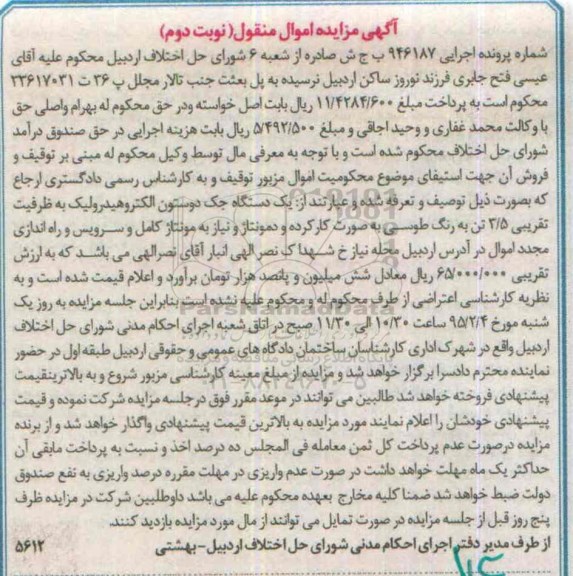 آگهی مزایده اموال منقول( نوبت دوم)
شماره پرونده اجرایی ۹۴۶۱۸۷ ب ج ش صادره از شعبه ۶ شورای حل اختلاف اردبیل محکوم علیه آقای
عیسی فتح جابری فرزند نوروز ساکن اردبیل نرسیده به پل بعثت جنب تالار مجلل پ ۳۶ ت ۳۳۶۱۷۰۳۱
محکوم است به پرداخت مبلغ ۱۱/۴۲۸۴/۶۰۰ ریال بابت اصل خواسته ودر حق محکوم له بهرام واصلی حق
با وکالت محمد غفاری و وحید اجاقی و مبلغ ۵/۴۹۲/۵۰۰ ریال بابت هزینه اجرایی در حق صندوق درآمد
شورای حل اختلاف محکوم شده است و با توجه به معرفی مال توسط وکیل محکوم له مبنی بر توقیف و
فروش آن جهت استیفای موضوع محکومیت اموال مزبور توقیف و به کارشناس رسمی دادگستری ارجاع
که بصورت ذیل توصیف و تعرفه شده و عبارتند از: یک دستگاه جک دوستون الکتروهیدرولیک به ظرفیت
تقریبی ۳/۵ تن به رنگ طوسی به صورت کارکرده و دمونتاژ و نیاز به مونتاژ کامل و سرویس و راه اندازی
مجدد اموال در آدرس اردبیل محله نیار خ شهدا ک نصر الهی انبار آقای نصرالهی می باشد که به ارزش
تقریبی ۶۵/۰۰۰/۰۰۰ ریال معادل شش میلیون و پانصد هزار تومان برآورد و اعلام قیمت شده است و به
نظریه کارشناسی اعتراضی از طرف محکوم له و محکوم علیه نشده است بنابراین جلسه مزایده به روز یک
شنبه مورخ ۹۵/۲/۴ ساعت ۱۰/۳۰ الی ۱۱/۳۰ صبح در اتاق شعبه اجرای احکام مدنی شورای حل اختلاف
اردبیل واقع در شهرک اداری کارشناسان ساختمان دادگاه های عمومی و حقوقی اردبیل طبقه اول در حضور
نماینده محترم دادسرا برگزار خواهد شد و مزایده از مبلغ معینه کارشناسی مزبور شروع و به بالاترینقیمت
پیشنهادی فروخته خواهد شد طالبین می توانند در موعد مقرر فوق درجلسه مزایده شرکت نموده و قیمت
پیشنهادی خودشان را اعلام نمایند مورد مزایده به بالاترین قیمت پیشنهادی واگذار خواهد شد و از برنده
مزایده درصورت عدم پرداخت کل ثمن معامله فی المجلس ده درصد اخذ و نسبت به پرداخت مابقی آن
حداکثر یک ماه مهلت خواهد داشت در صورت عدم واریزی در مهلت مقرره درصد واریزی به نفع صندوق
دولت ضبط خواهد شد ضمنا کلیه مخارج بعهده محکوم علیه می باشد داوطلبین شرکت در مزایده ظرف
پنج روز قبل از جلسه مزایده در صورت تمایل می توانند از مال مورد مزایده بازدید کنند.
از طرف مدیر دفتر اجرای احکام مدنی شورای حل اختلاف اردبیل-بهشتی
۵۶۱۲
ParsNamadData